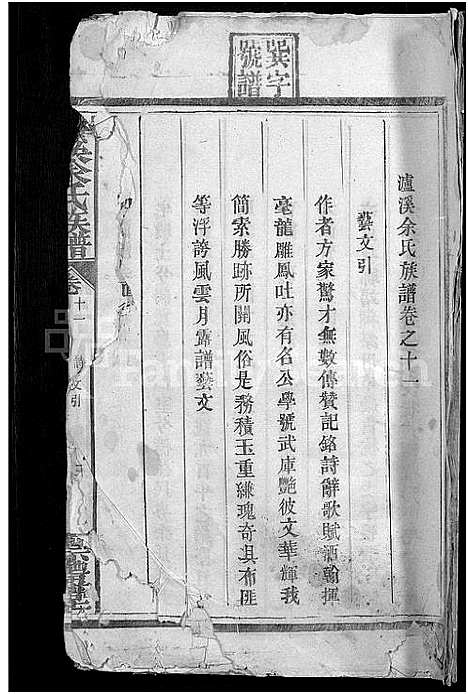 巽字號譜
瀘溪余氏族譜卷之十一
藝文引
作者方家驚才無數傳贊記銘詩辭歌賦酒翰揮
毫龍雕鳳吐亦有名公學號武庫艷彼文華輝我
簡索勝跡所關風俗是務積玉重縑瑰奇具布匪
等浮誇風雲月露譜藝文
溪余氏族譜
卷十一
文引